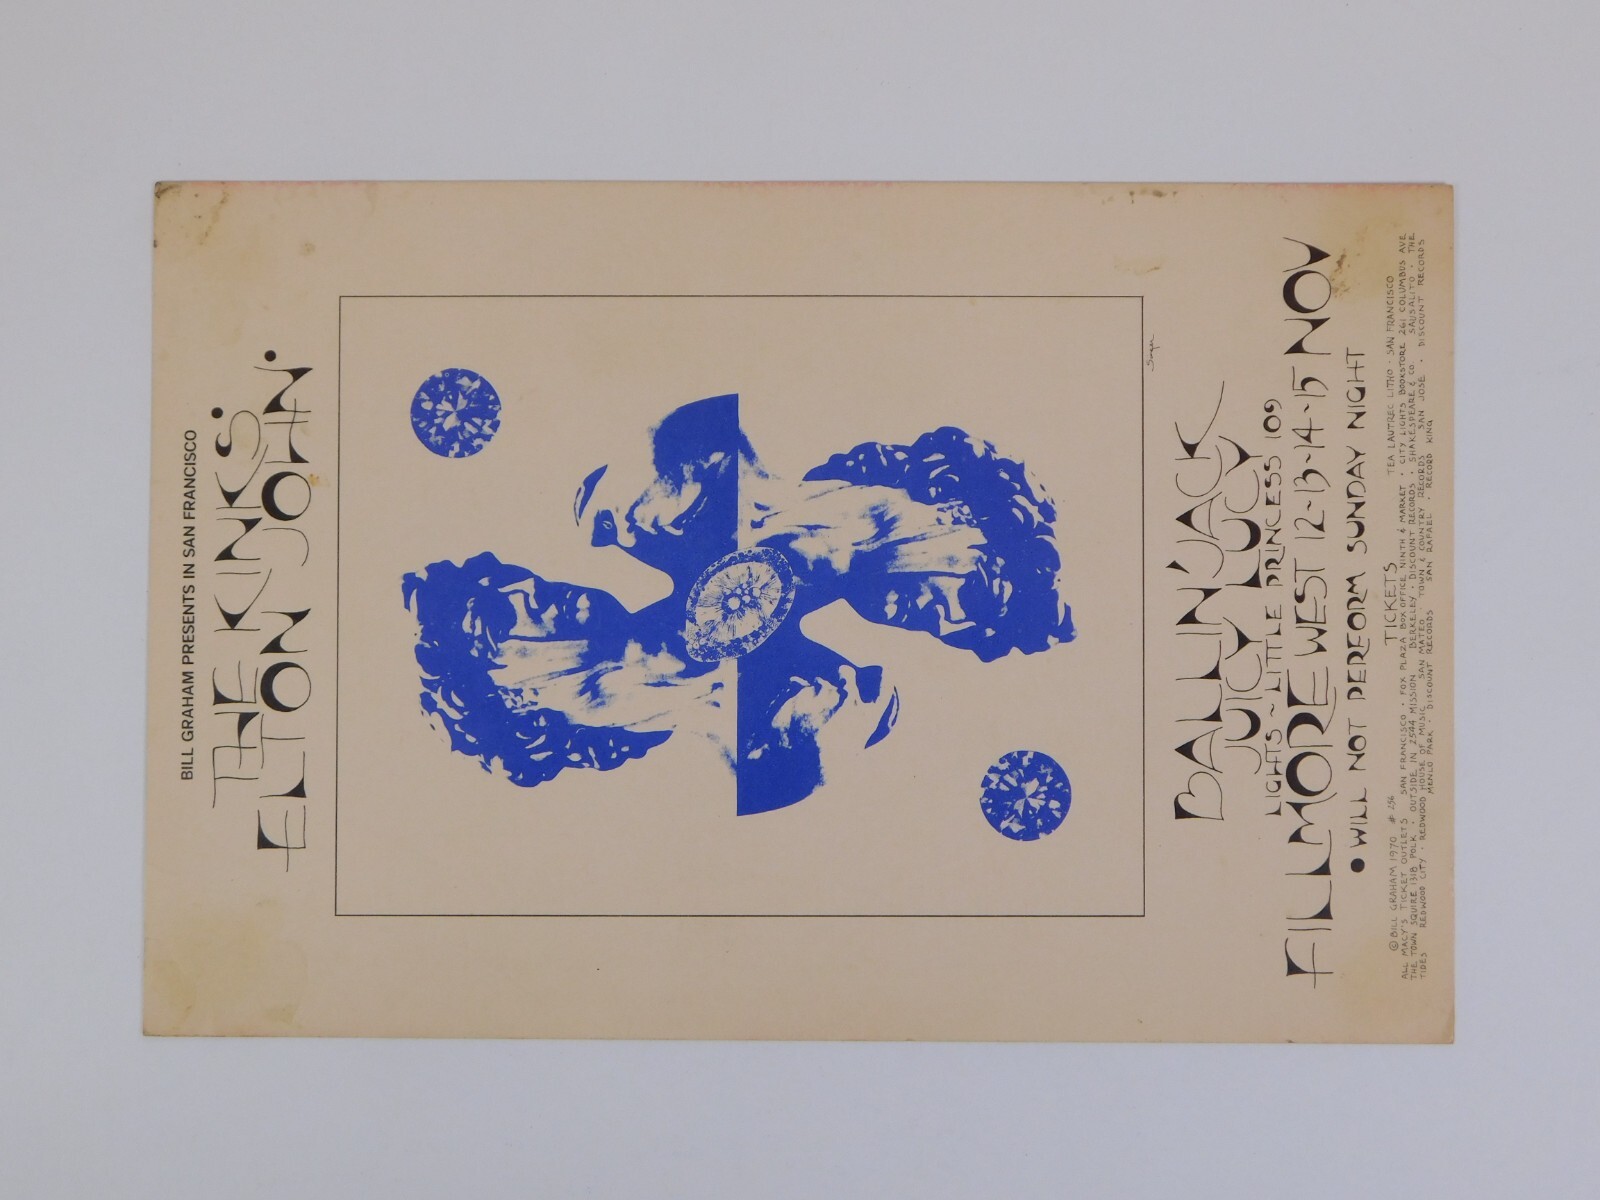 BILL GRAHAM PRESENTS IN SAN FRANCISCO
THE KINKS •
ELTON JOHN •
Singer
BALLIN' JACK
JUICY LUCY
LIGHTS ~ LITTLE PRINCESS 109
FILLMORE WEST 12~13~14~15 NOV
• WILL NOT PERFORM SUNDAY NIGHT
TICKETS
© BILL GRAHAM 1970 # 256 TEA LAUTREC LITHO · SAN FRANCISCO
ALL MACY'S TICKET OUTLETS SAN FRANCISCO · FOX PLAZA BOX OFFICE NINTH & MARKET · CITY LIGHTS BOOKSTORE 261 COLUMBUS AVE
THE TOWN SQUIRE 1318 POLK · OUTSIDE IN 2544 MISSION BERKELEY · DISCOUNT RECORDS · SHAKESPEARE & CO. SAUSALITO · THE
TIDES REDWOOD CITY · REDWOOD HOUSE OF MUSIC SAN MATEO · TOWN & COUNTRY RECORDS SAN JOSE · DISCOUNT RECORDS
MENLO PARK · DISCOUNT RECORDS SAN RAFAEL · RECORD KING